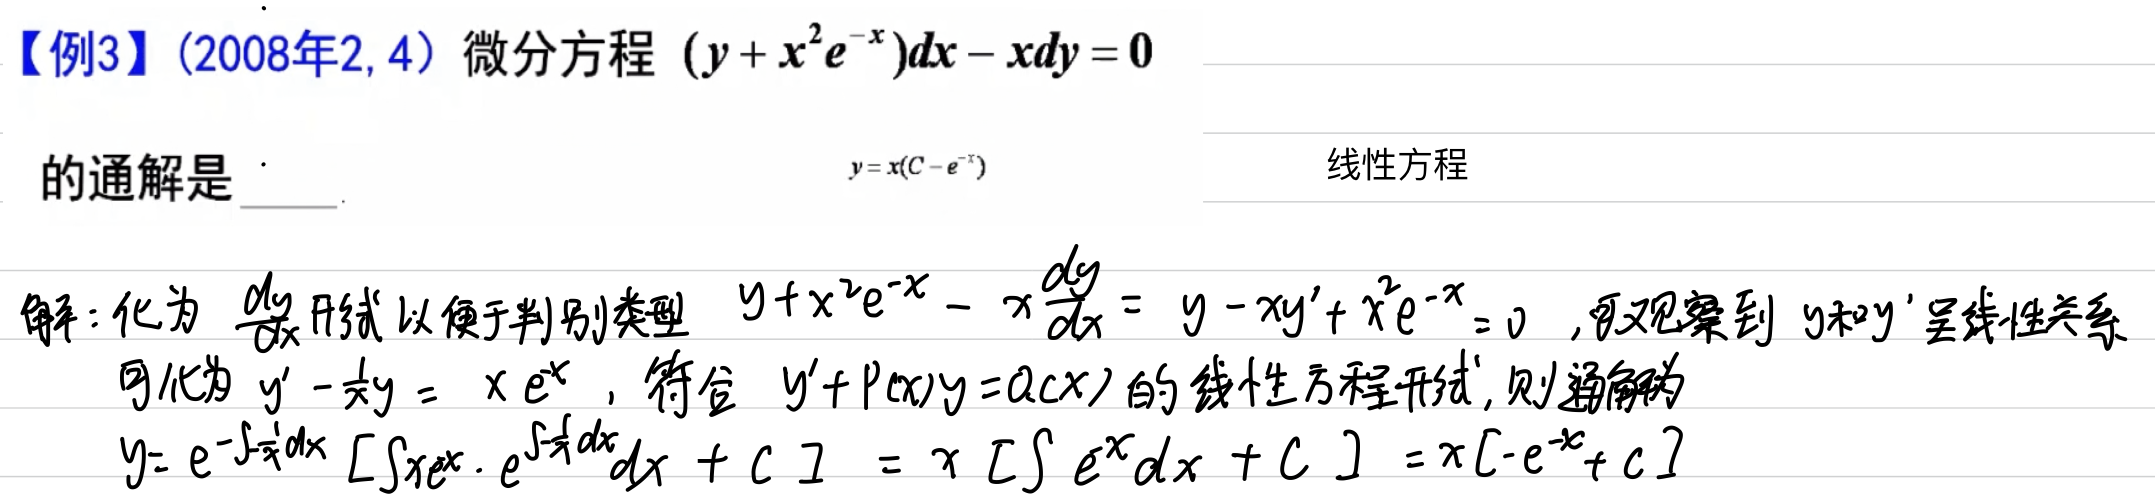 【例3】(2008年2, 4) 微分方程 (y + x²e⁻ˣ)dx − xdy = 0
的通解是____.
y = x(C − e⁻ˣ)
线性方程
解: 化为 dy/dx 形式 以便于判别类型 y + x²e⁻ˣ − x dy/dx = y − xy' + x²e⁻ˣ = 0 ,可观察到 y和y'呈线性关系
可化为 y' − 1/x y = x e⁻ˣ , 符合 y' + P(x)y = Q(x) 的线性方程形式, 则通解为
y = e^(−∫−1/x dx) [∫xe⁻ˣ · e^(∫−1/x dx) dx + C ] = x [∫ e⁻ˣ dx + C ] = x [−e⁻ˣ + C]